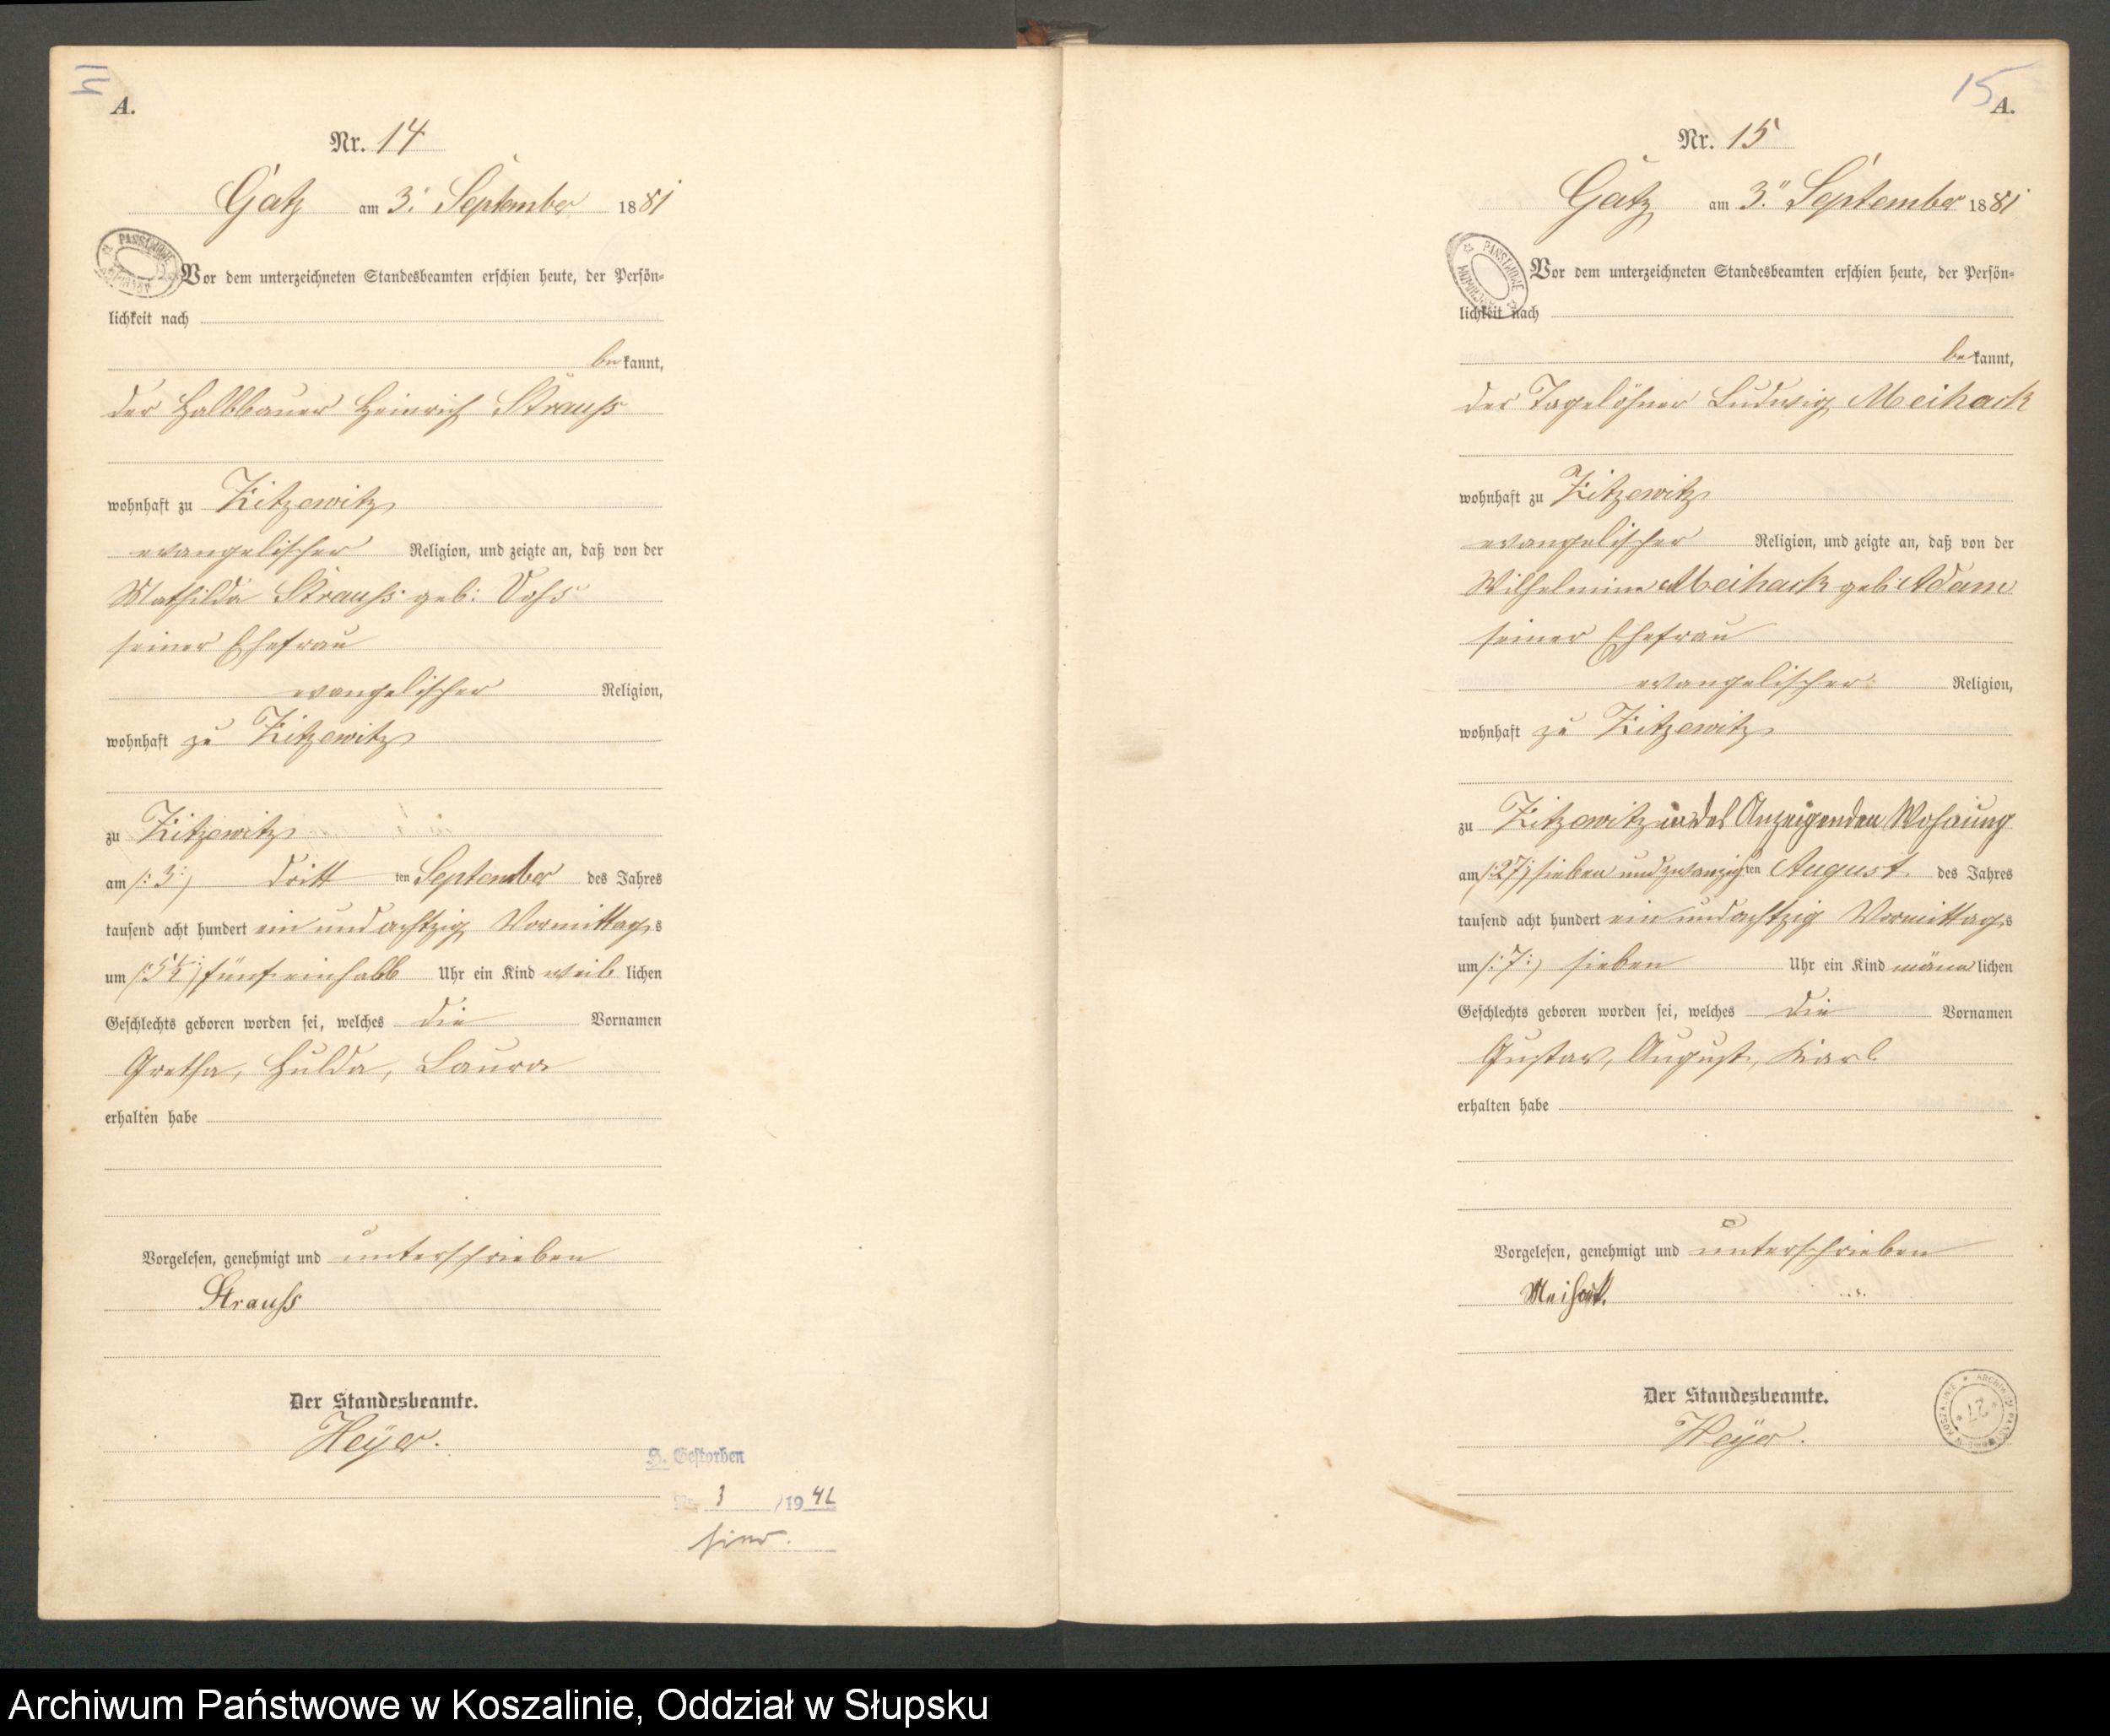 A.
Nr. 14
Gatz am 3. September 1881
Vor dem unterzeichneten Standesbeamten erschien heute, der Persön=
lichkeit nach
bekannt,
der Halbbauer Heinrich Strauss
wohnhaft zu Zitzewitz
evangelischer Religion, und zeigte an, daß von der
Mathilda Strauss geb: Voss
seiner Ehefrau
evangelischer Religion,
wohnhaft zu Zitzewitz
zu Zitzewitz
am /:3:/ dritt ten September des Jahres
tausend acht hundert ein und achtzig Vormittags
um /:5½:/ fünfeinhalb Uhr ein Kind weib lichen
Geschlechts geboren worden sei, welches die Vornamen
Gretha, Hulda, Laura
erhalten habe
Vorgelesen, genehmigt und unterschrieben
Strauss
Der Standesbeamte.
Heyer.
H. Gestorben
Nr. 3 /1942
hier.
15
A.
Nr. 15
Gatz am 3. September 1881
PAŃSTWOWE ARCHIWUM
Vor dem unterzeichneten Standesbeamten erschien heute, der Persön=
lichkeit nach
bekannt,
der Tagelöhner Ludwig Meihack
wohnhaft zu Zitzewitz
evangelischer Religion, und zeigte an, daß von der
Wilhelmine Meihack geb. Adam
seiner Ehefrau
evangelischer Religion,
wohnhaft zu Zitzewitz
zu Zitzewitz in des Anzeigenden Wohnung
am /:27:/ sieben und zwanzigsten August des Jahres
tausend acht hundert ein und achtzig Vormittags
um /:7:/ sieben Uhr ein Kind männlichen
Geschlechts geboren worden sei, welches die Vornamen
Gustav, August, Karl
erhalten habe
Vorgelesen, genehmigt und unterschrieben
Meihack.
Der Standesbeamte.
Heyer.
Archiwum Państwowe w Koszalinie, Oddział w Słupsku